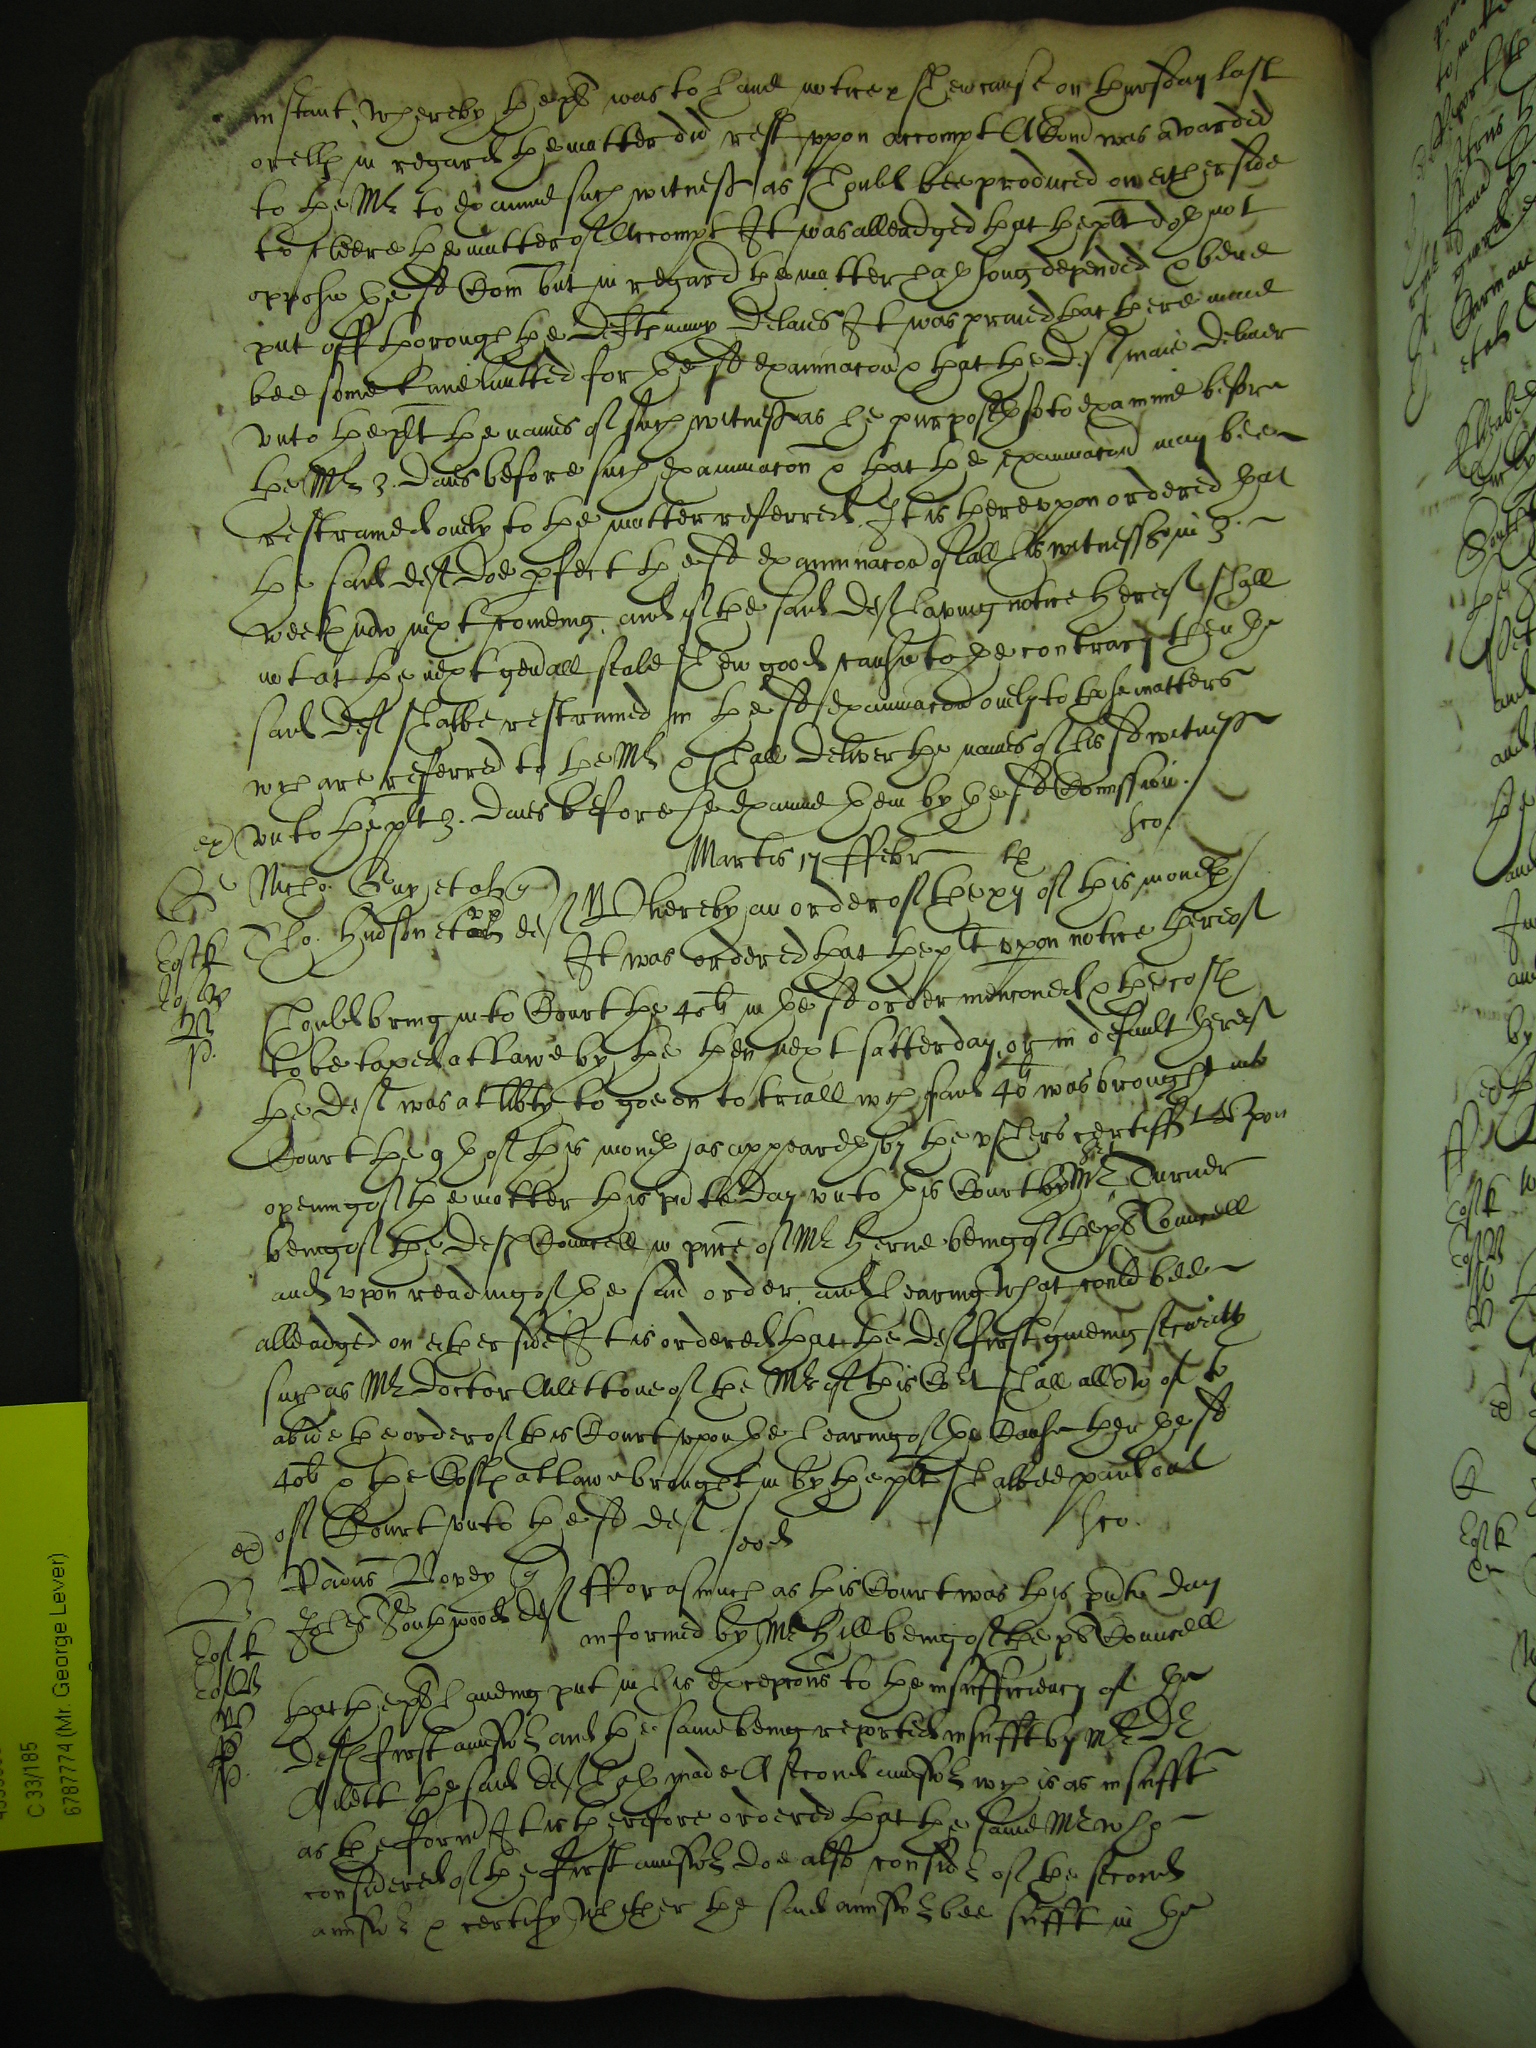 instant, whereby the pl was to have notice & shew cause on thursday last
or ells in regard the matter did rest uppon accompt A Com was awarded
to the Mr to examine such witness as should bee produced on either side
to cleere the matter of Accompt It was alleadged that the plt doth not
oppose the sd Com but in regard the matter hath long depended & bene
put off thorough the defts many delaies It was praied that there maie
bee some time limitted for the sd examinacon & that the deft maie deliuer
vnto the plt the names of such witness as he purposeth so to examine before
the Mr 3. daies before such examinacon & that the examinacon may bee
restrained onely to the matter referred. It is therevpon ordered that
the said deft doe pfect the sd examinacon of all his witnesses in 3.
weekes now next comeing, and if the said deft having notice hereof shall
not at the next genall seale shew good cause to the contrary then the
said deft shalbe restrained in the sd examinacon onely to those matters
wch are referred to the Mr & shall deliver the names of his sd witness
ex vnto the plt 3. daies before he examine them by the sd Comission.
Martis 17 ffebr
Nicho. Guy et al q
Tho. Hudson et deft
Whereby an order of the xj of this moneth
It was ordered that the plt upon notice thereof
should bring into Court the 40li in the sd order menconed & the costs
to be taxed at lawe by the then next satterday, or in default thereof
the deft was at libty to goe on to triall wch said 40li was brought into
Court the 9th of this moneth as appeareth by the vshers certiff Vpon
opening of the matter this pnte day vnto this Court by Mr Turner
being of the defts Councell in pnce of Mr Herne being of the pls Councell
and vpon reading of the said order and hearing what could bee
alleadged on either side It is ordered that the deft first giueing security
such as Mr Doctor of the Mrs of this Cort shall allow of to
abide the order of this Court vpon the hearing of the Cause then the sd
40li & the Costs at lawe brought in by the plt shalbee paid out
ex of Court vnto the sd deft
eod
q
Southwood deft
fforasmuch as this Court was this pnte day
informed by Mr Hill being of the pls Councell
that the pl haueing put in his excepcons to the insufficiency of the
defts first answer and the same being reported insufft by Mr Dr
the said deft hath made A second answer wch is as insufft
as the form It is therefore ordered that the same Mr who
considered of the first answer doe also consider of the second
answer & certify whether the said answer bee sufft in the
C 33/185
6787774 (Mr. George Lever)